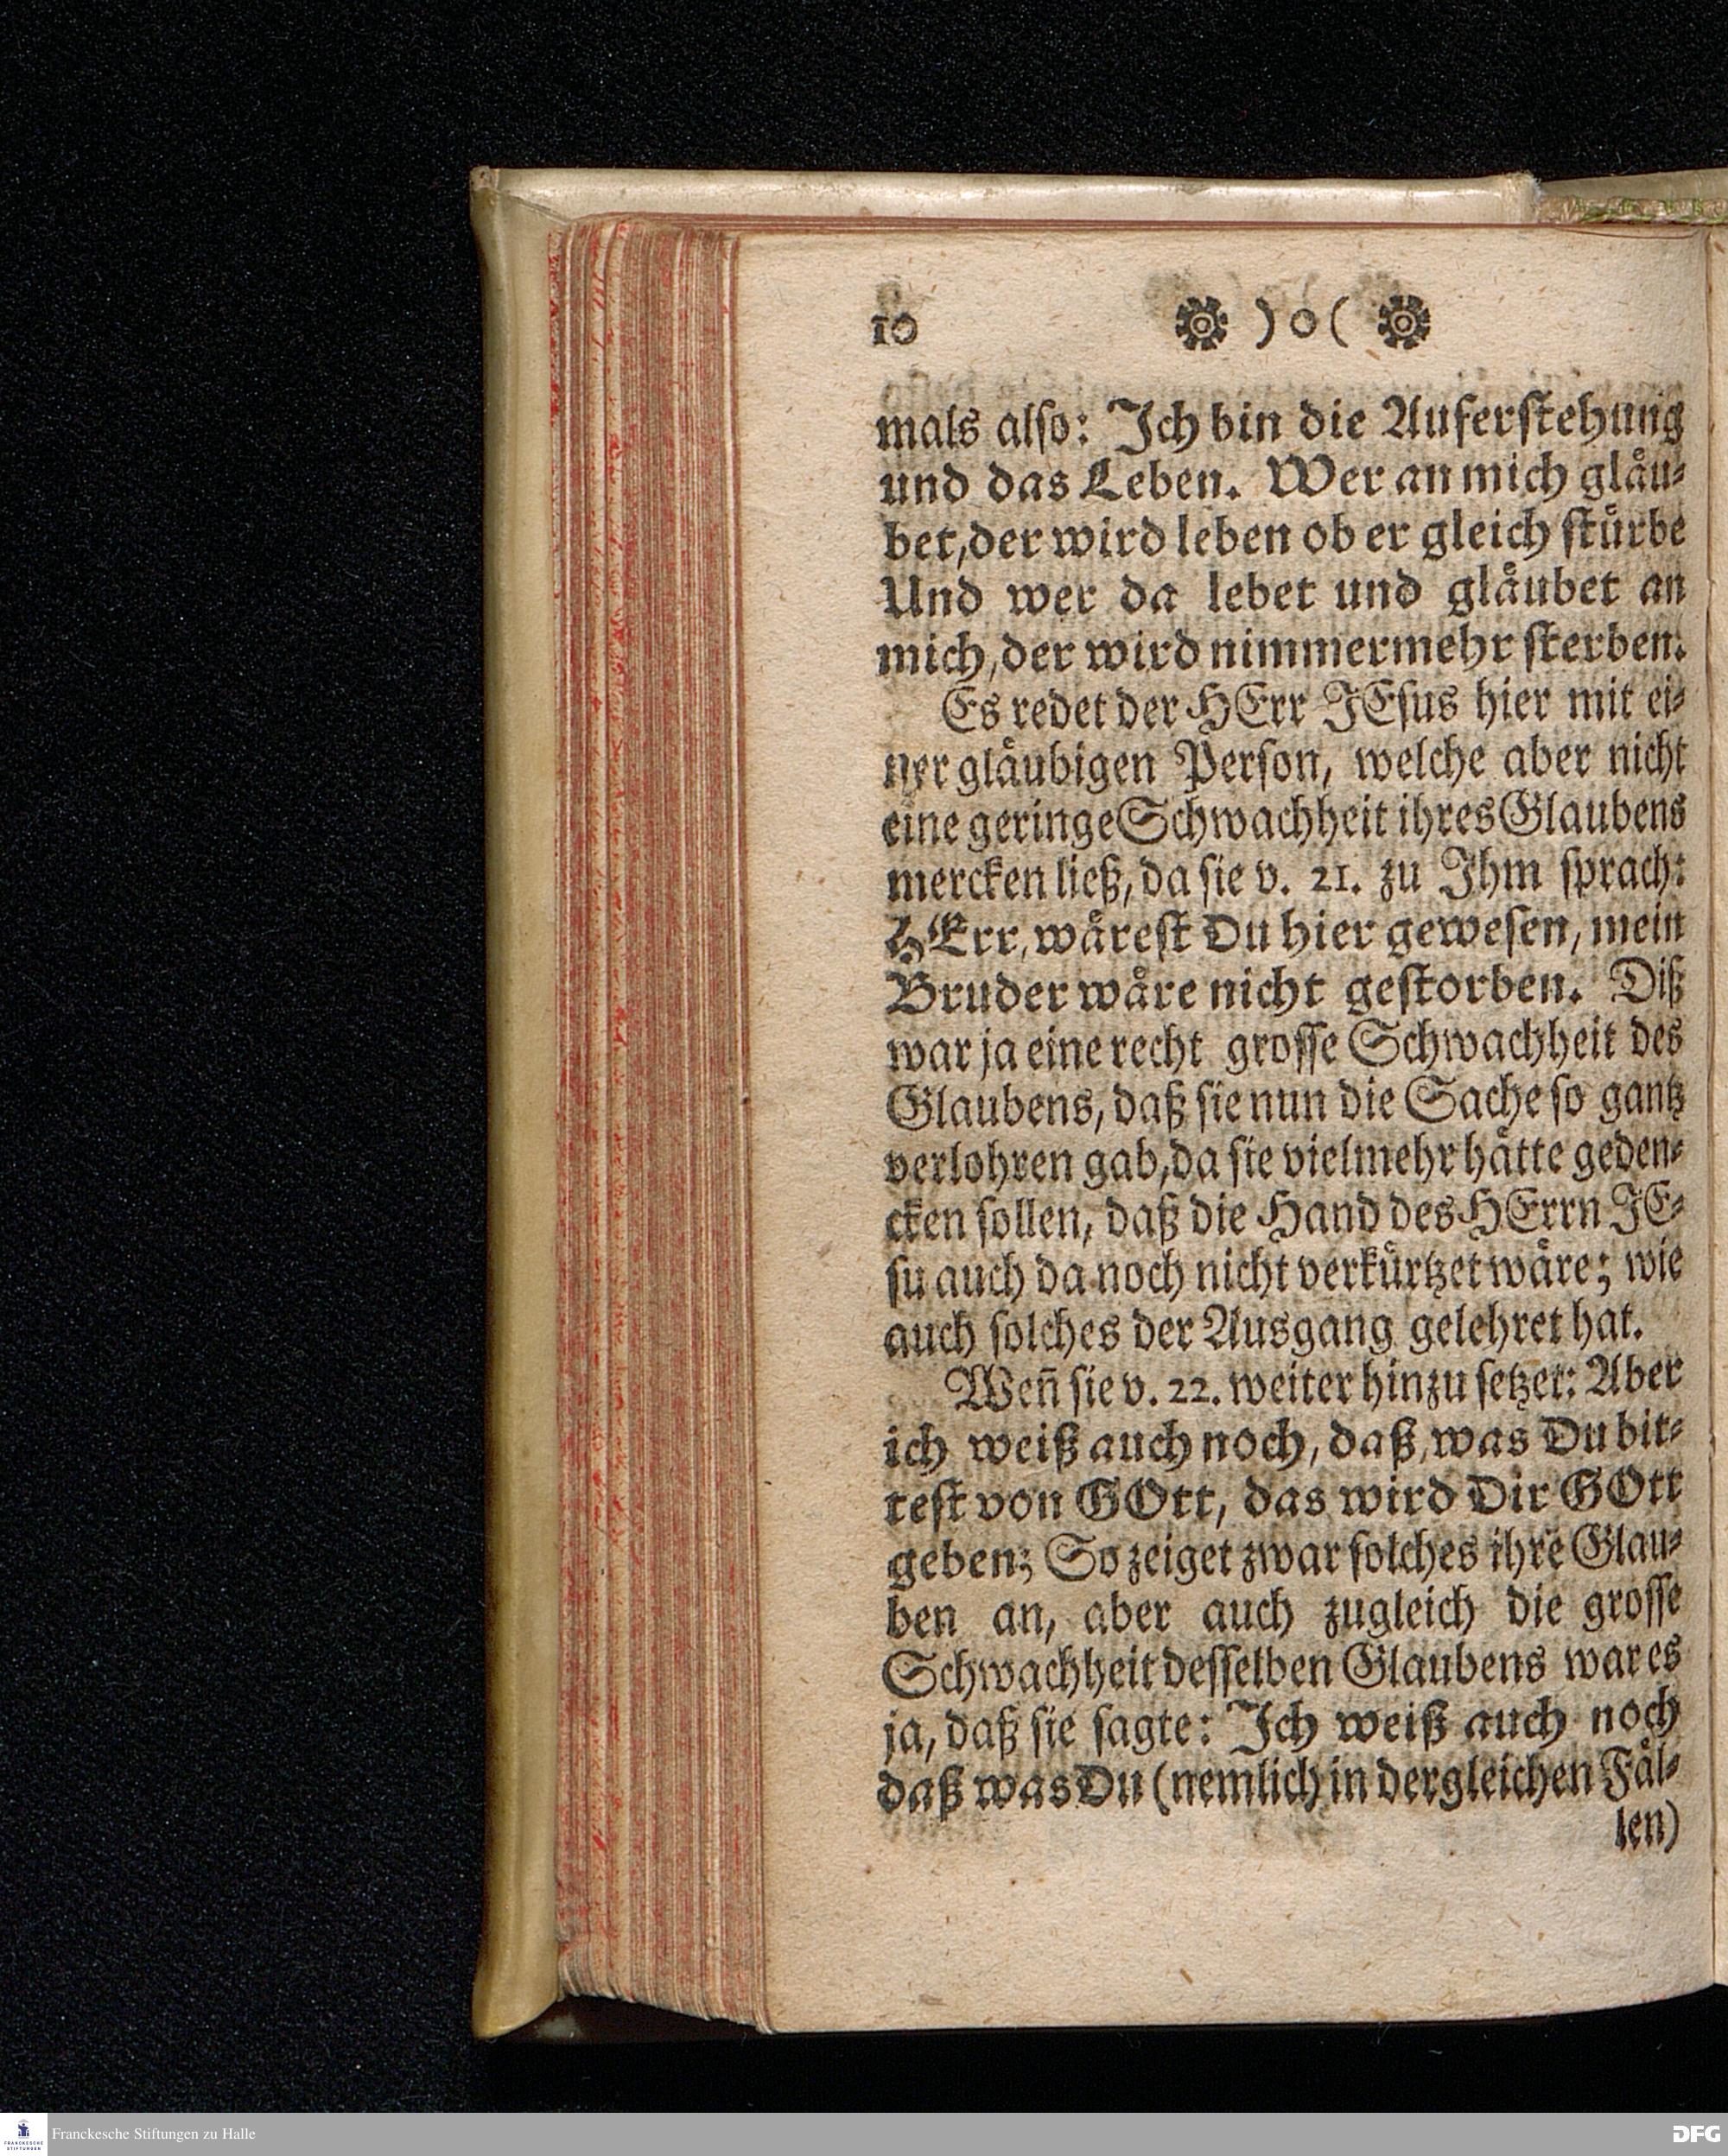 10 ❁ ) o ( ❁
mals also: Ich bin die Auferstehung
und das Leben. Wer an mich gläu-
bet, der wird leben ob er gleich stürbe
Und wer da lebet und gläubet an
mich, der wird nimmermehr sterben.
Es redet der HErr JEsus hier mit ei-
ner gläubigen Person, welche aber nicht
eine geringe Schwachheit ihres Glaubens
mercken ließ, da sie v. 21. zu Ihm sprach:
HErr, wärest Du hier gewesen, mein
Bruder wäre nicht gestorben. Diß
war ja eine recht grosse Schwachheit des
Glaubens, daß sie nun die Sache so gantz
verlohren gab, da sie vielmehr hätte geden-
cken sollen, daß die Hand des HErrn JE-
su auch da noch nicht verkürtzet wäre; wie
auch solches der Ausgang gelehret hat.
Weñ sie v. 22. weiter hinzu setzet: Aber
ich weiß auch noch, daß, was Du bit-
test von GOtt, das wird Dir GOtt
geben; So zeiget zwar solches ihre Glau-
ben an, aber auch zugleich die grosse
Schwachheit desselben Glaubens war es
ja, daß sie sagte: Ich weiß auch noch
daß was Du (nemlich in dergleichen Fäl-
len)
FRANCKESCHE STIFTUNGEN
Franckesche Stiftungen zu Halle
DFG